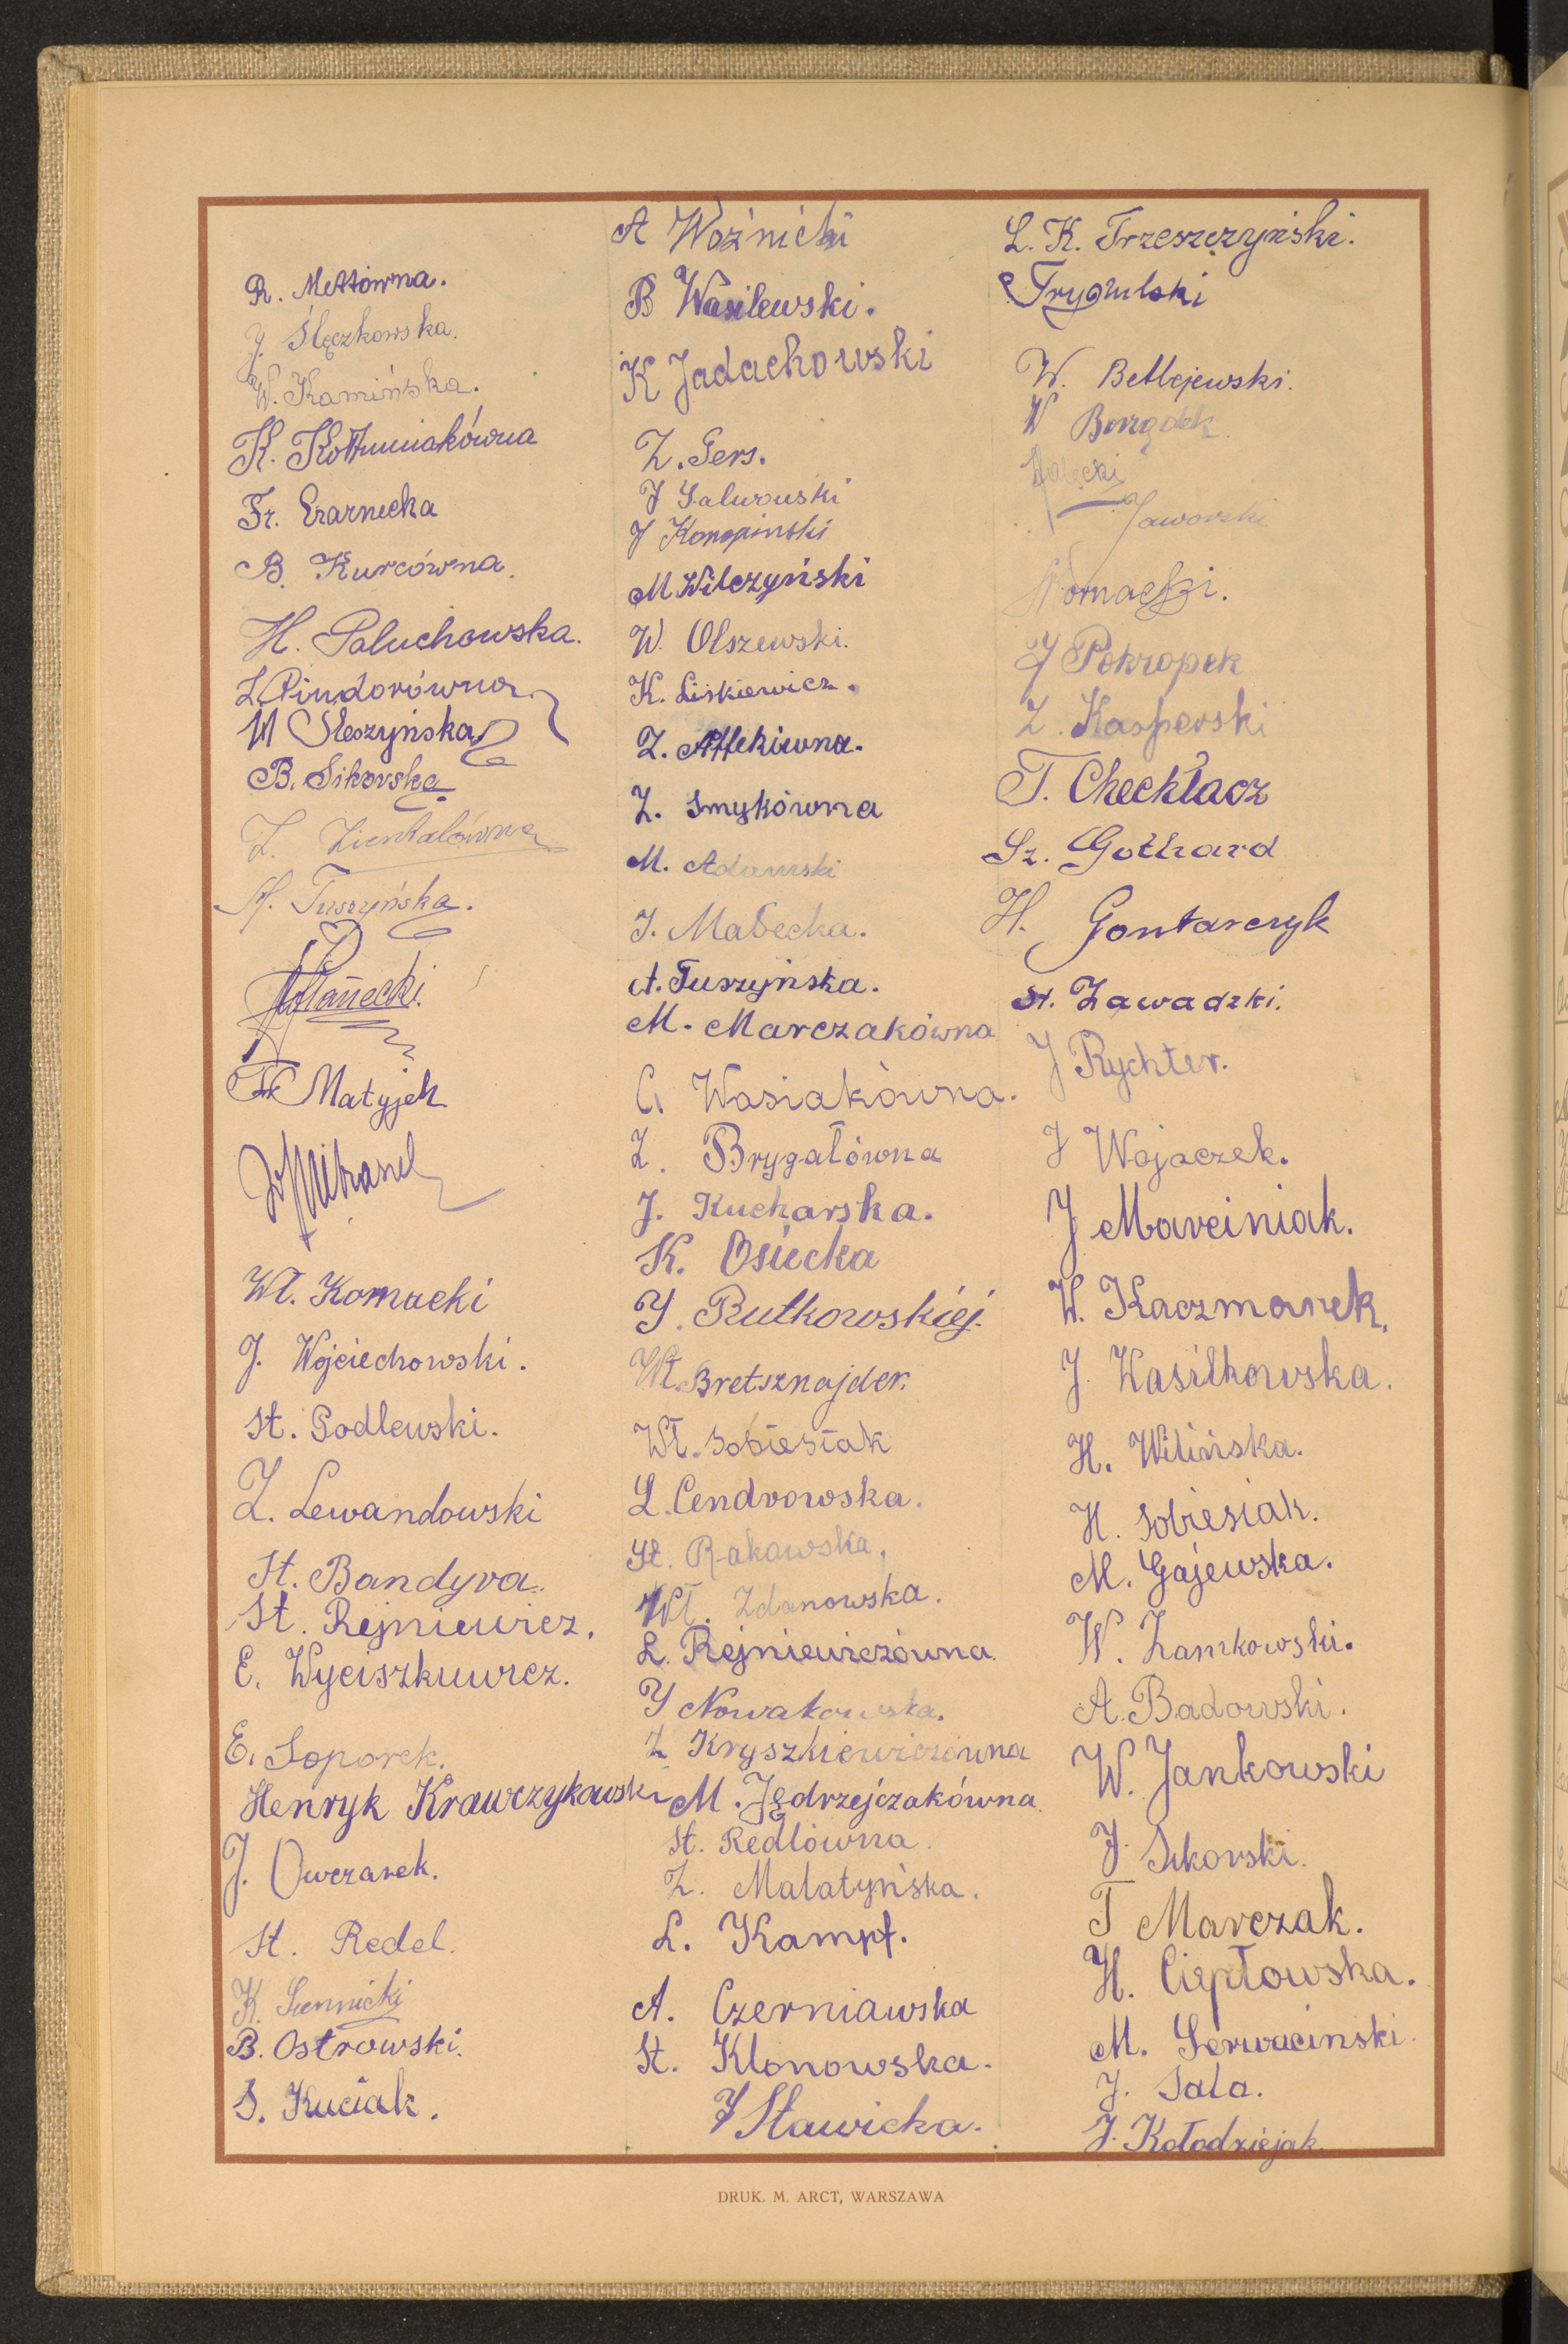 R. Mettówna.
J. Ślęczkowska.
W. Kamińska.
K. Kołtuniakówna
Fr. Czarnecka
B. Kurcówna.
H. Paluchowska.
L. Pindorówna.
M Steszyńska
B. Sikorska
Z. Zientalówna
M. Tuszyńska.
Fr. Matyjek
Wł. Kornacki
J. Wojciechowski.
St. Podlewski.
Z. Lewandowski
St. Bandyra.
St. Rejniewicz.
E. Wyciszkiewicz.
E. Soporek.
Henryk Krawczykowski
J. Owczarek.
St. Redel.
K. Siennicki
B. Ostrowski.
S. Kuciak.
A Woźnicki
B Wasilewski.
K Jadachowski
Z. Gers.
J Galwowski
J Konopinski
M Wilczyński
W. Olszewski.
K. Liskiewicz.
Z.
Z. Smykówna
M. Adamski
J. Małecka.
A. Tuszyńska.
M. Marczakówna
C. Wasiakówna.
Z. Brygałówna
J. Kucharska.
K. Osiecka
J. Rutkowskiej.
Wł. Bretsznajder.
Wł. Sobiesiak
L. Cendrowska.
St. Rakowska.
Wł. Zdanowska.
L. Rejniewiczówna.
J Nowakowska.
Z Kryszkiewiczówna
M. Jędrzejczakówna.
St. Redlówna.
Z. Malatyńska.
L. Kampf.
A. Czerniawska
St. Klonowska.
J Sławicka.
L. K. Trzeszczyński.
Trygulski
W. Betlejewski.
W
Jaworski
Kornacki.
J Pokropek
Z. Kasperski
T. Checkłacz
Sz. Gothard
H. Gontarczyk
St. Zawadzki.
J Rychter.
J Wojaczek.
J Marciniak.
W. Kaczmarek.
J. Wasilkowska.
H. Wilińska.
H. Sobiesiak.
M. Gajewska.
W. Zamkowski.
A. Badowski.
W. Jankowski
J. Sikorski.
T Marczak.
H. Ciepłowska.
M. Serwacinski.
J. Sala.
J. Kołodziejak.
DRUK. M. ARCT, WARSZAWA